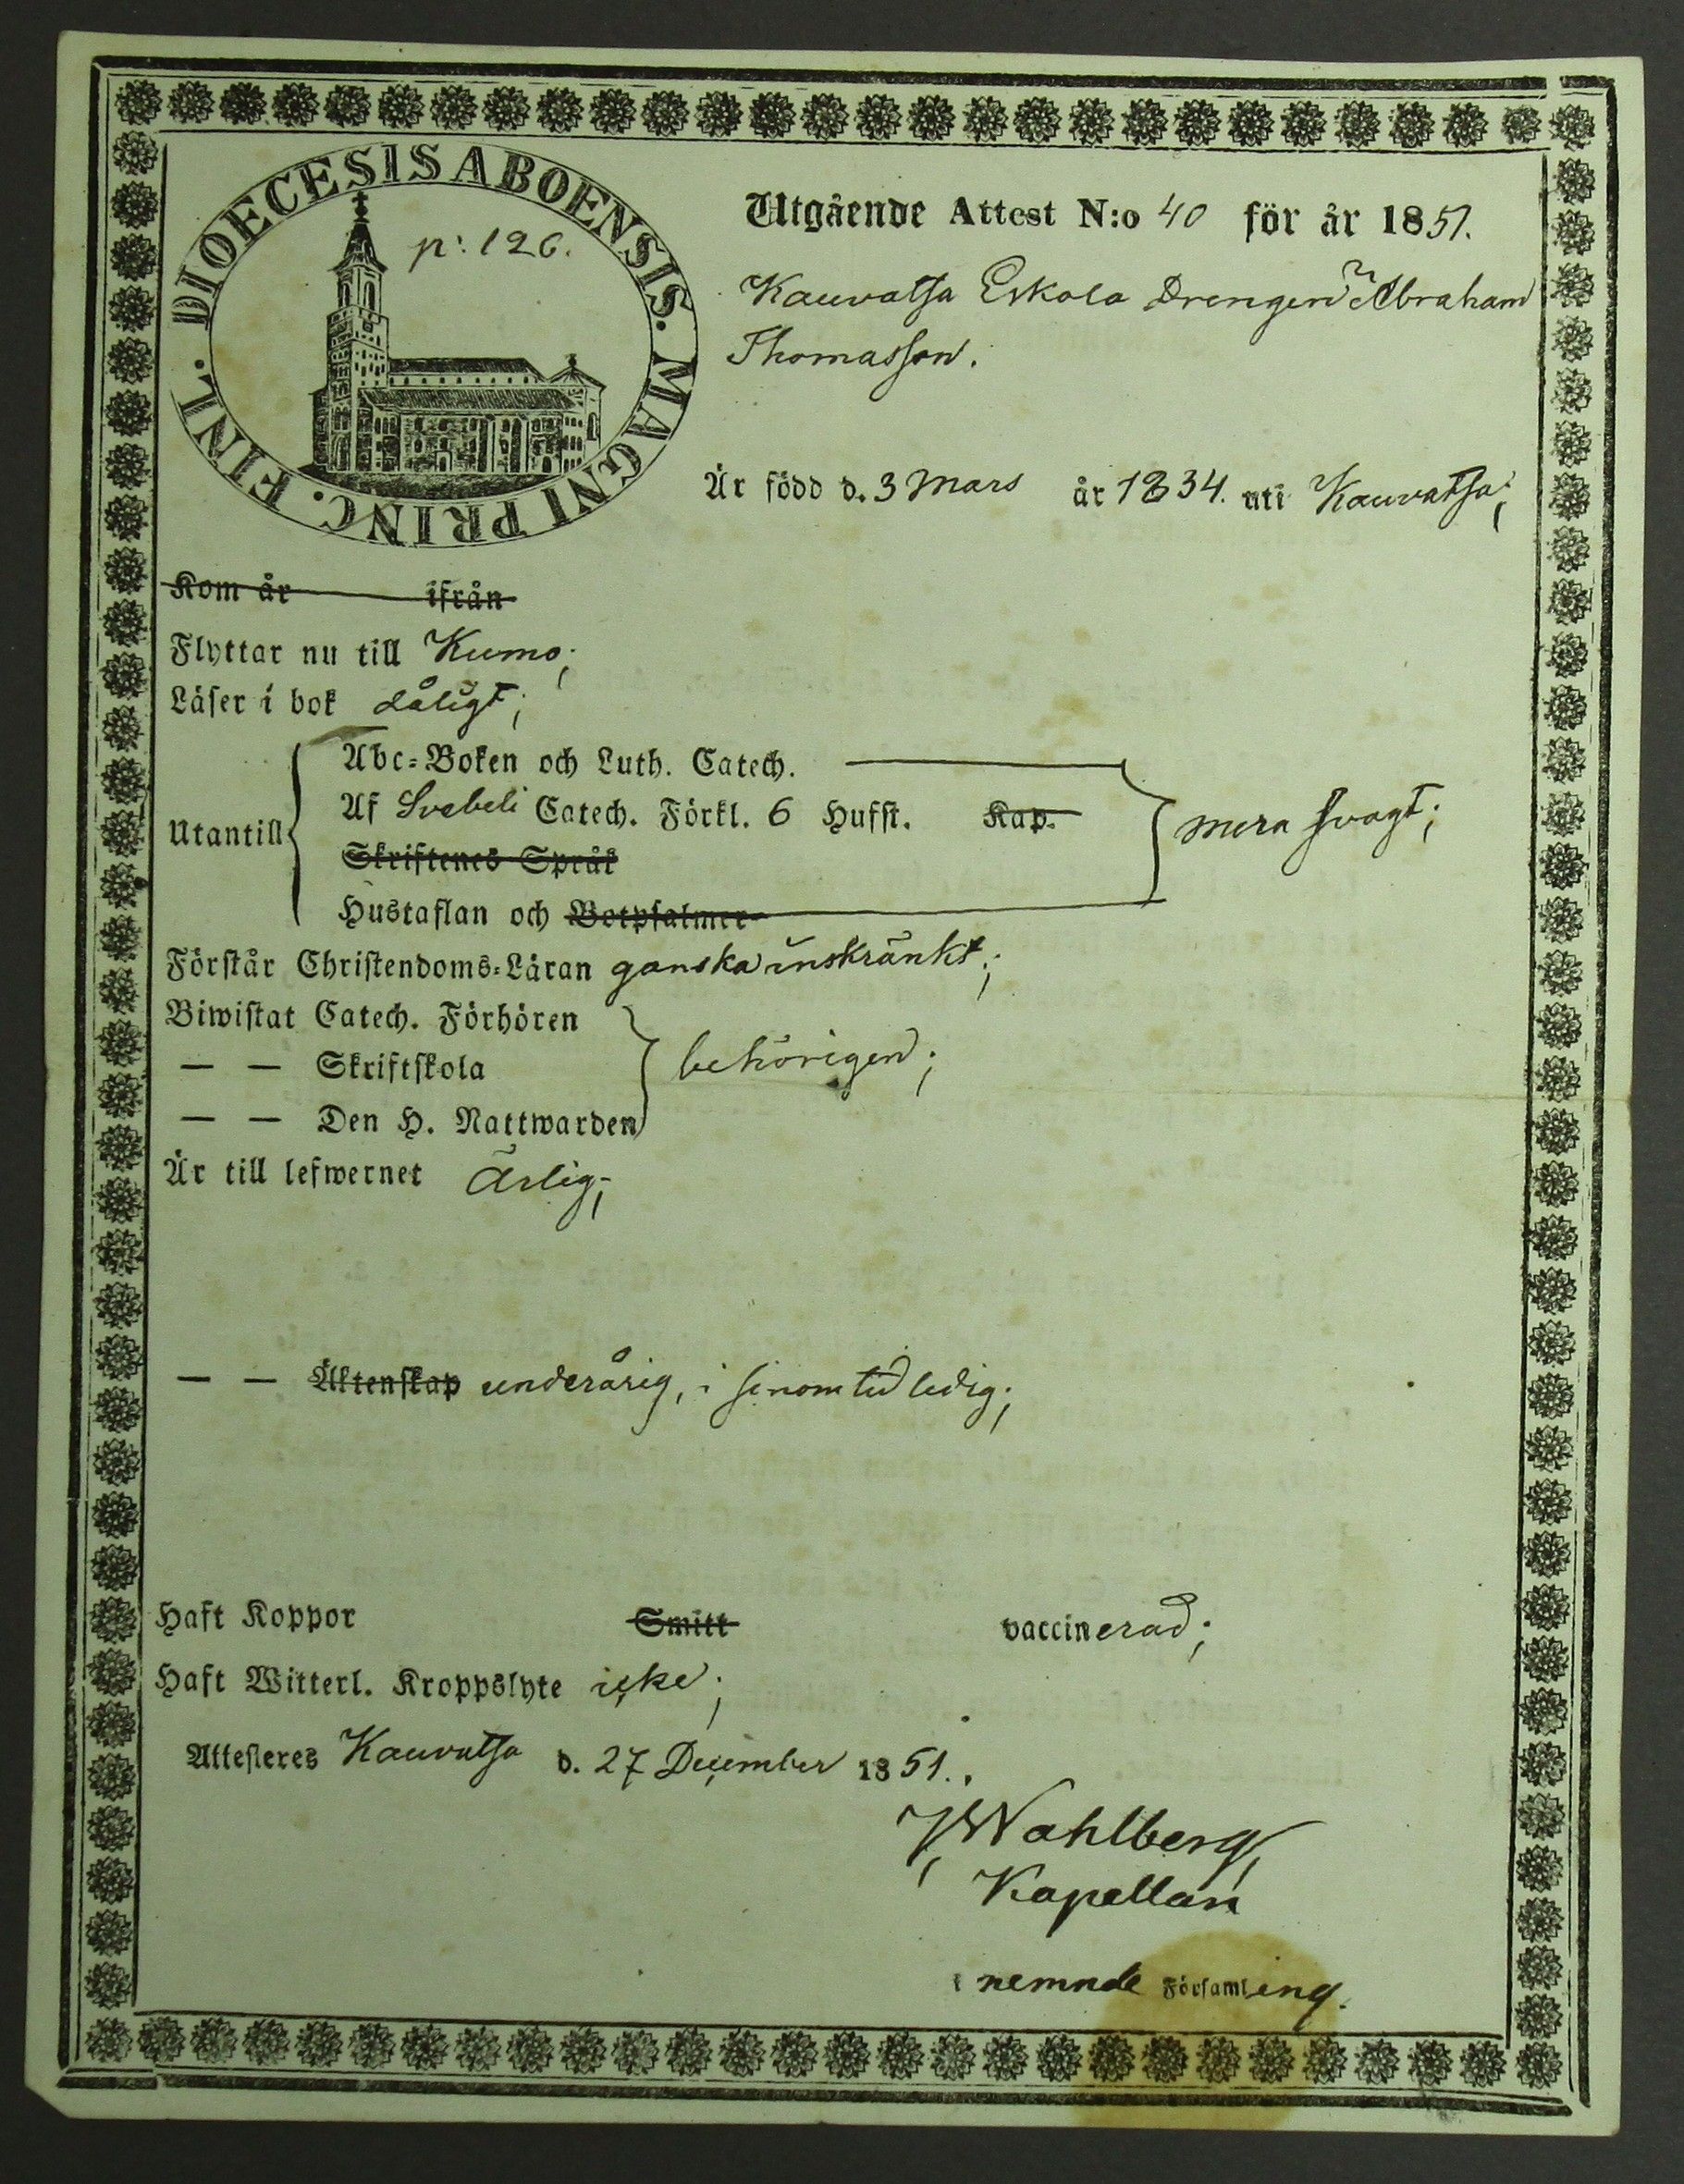 DIOECESIS ABOENSIS. MAGNI PRINC. FINL.
p: 126.
Utgående Attest N:o 40 för år 1851.
Kauvatsa Eskola Drengen Abraham
Thomasson.
Är född d. 3 Mars år 1834. uti Kauvatsa;
Kom år ifrån
Flyttar nu till Kumo;
Läser i bok dåligt;
Utantill
Abc-Boken och Luth. Catech.
Af Svebeli Catech. Förkl. 6 Hufst. Kap.
Skriftenes Språk
Hustaflan och Botpsalmer
mera svagt;
Förstår Christendoms-Läran ganska inskränkt;
Biwistat Catech. Förhören
— — Skriftskola
— — Den H. Nattwarden
behörigen;
Är till lefwernet ärlig;
— — Äktenskap underårig, i sinom tid ledig;
Haft Koppor Smitt vaccinerad;
Haft Witterl. Kroppslyte icke;
Attesteres Kauvatsa d. 27 December 1851.
Wahlberg
Kapellan
i nemnde Församling.